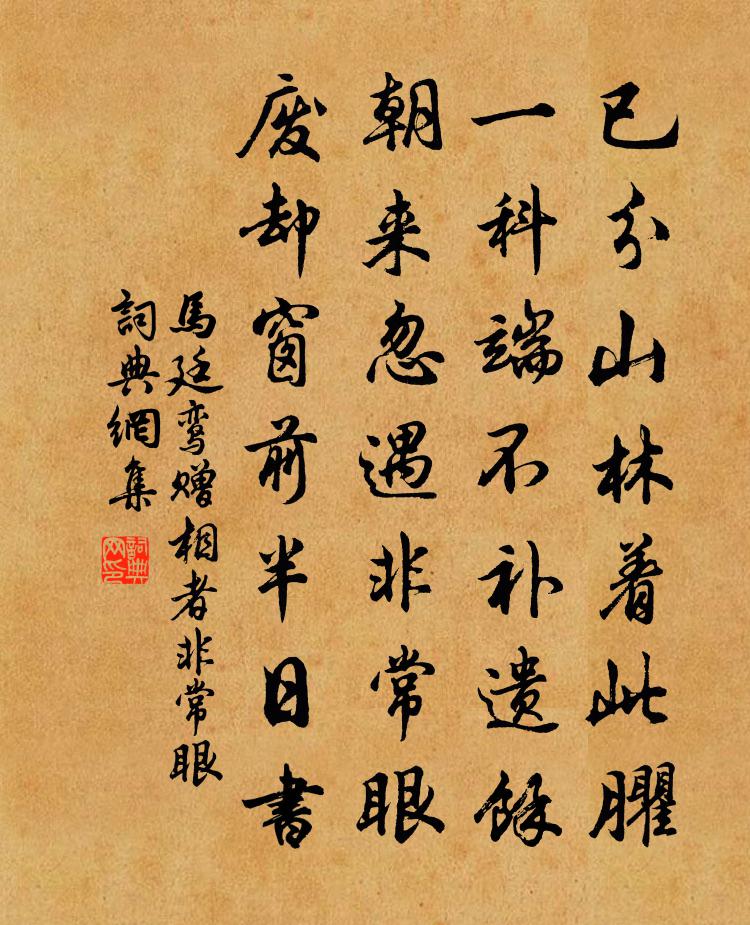 已分山林着此臞
一科端不补遗餘
朝来忽遇非常眼
废却窗前半日書
馬廷鸾赠相者非常眼
詞典網集
詞典
网印